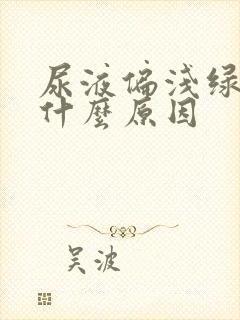 尿液偏浅绿
什麼原因
吴波